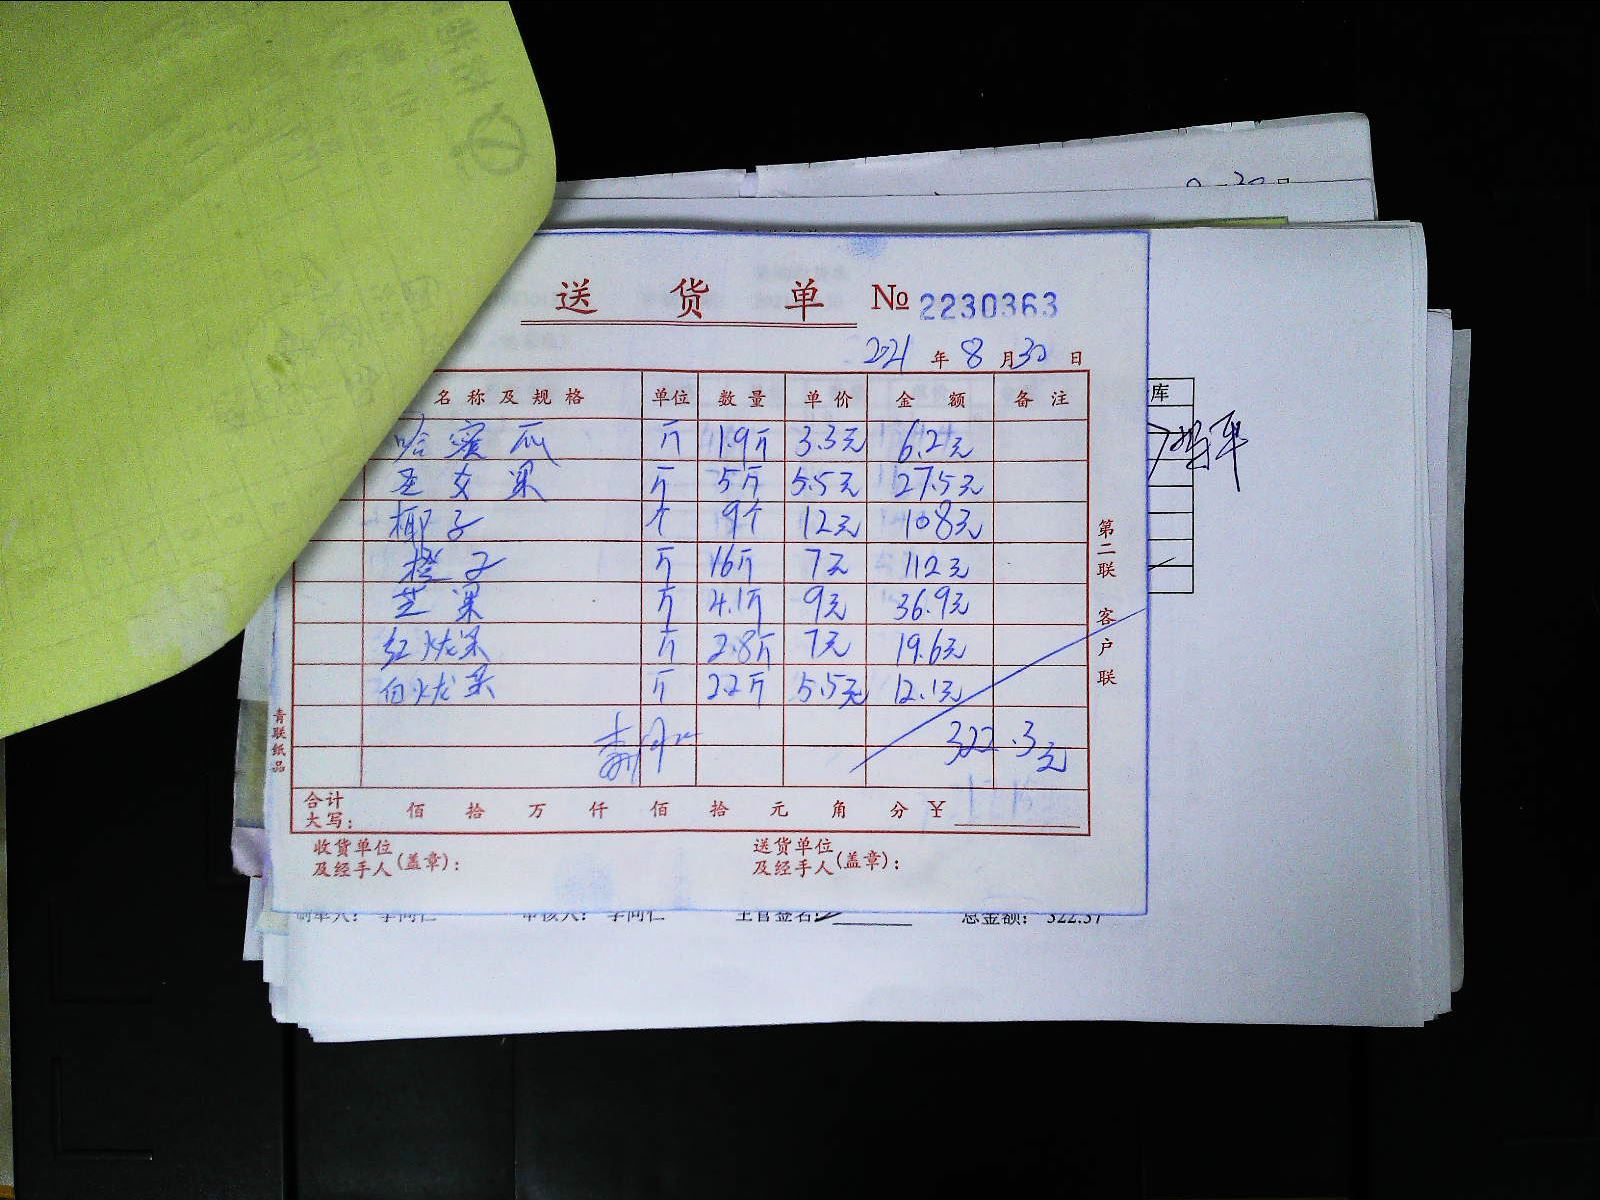 送 货 单 № 2230363
2021 年 8 月 30 日
名 称 及 规 格 单位 数 量 单 价 金 额 备 注
哈蜜瓜 斤 1.9斤 3.3元 6.2元
圣女果 斤 5斤 5.5元 27.5元
椰子 个 9个 12元 108元
橙子 斤 16斤 7元 112元
芒果 斤 4.1斤 9元 36.9元
红火龙果 斤 2.8斤 7元 19.6元
白火龙果 斤 2.2斤 5.5元 12.1元
322.3元
合计
大写: 佰 拾 万 仟 佰 拾 元 角 分 ¥
收货单位
及经手人(盖章):
送货单位
及经手人(盖章):
第二联 客户联
青联纸品
库
制单人: 李向仁 审核人: 李向仁 主管签名: 总金额: 322.37